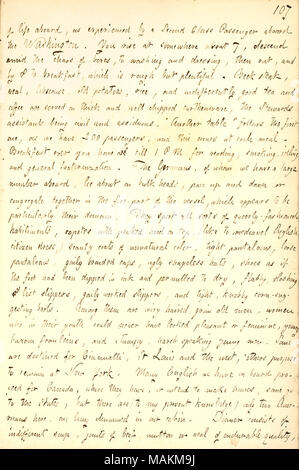 107
of life aboard, as experienced by a Second Class Passenger aboard
the Washington. You rise at somewhere about 7, descend
amid the chaos of boxes, to washing and dressing, then out, and
by 8 to breakfast, which is rough but plentiful. Beef steak,
veal, Cheese, old potatoes, rice, and indifferently good tea and
coffee are served in thick and well chipped earthenware, the Stewards
assistants being civil and assiduous. Another table follows the first
one, as we have 200 passengers, and this occurs at each meal.
Breakfast over you have till 1 P M for reading, smoking, idling
and general fraternization. The Germans, of whom we have a large
number aboard, lie about on bulk heads, pace up and down or
congregate together in the fore part of the vessel, which appears to be
particularly their domain. They sport all sorts of queerly-fashioned
habiliments, capotes with peaked hoods on 'em, like to mediæval English
citizen dress; scanty coats of unnatural color, tight pantaloons, loose
pantaloons, gaily banded caps, ugly shapeless hats, shoes as if
the foot had been dipped in ink and permitted to dry, flabby, sloshing
list slippers, gaily worked slippers, and tight, knobby corn-sug-
gesting boots. Among them are very hurried, grim old ones, women
who in their youth could never have looked pleasant or feminine, young
various frontiers, and clumsy, harsh speaking young men. Some
are destined for Cincinnatti, St Louis and the west, others purpose
to remain at New York. Many English we have on board pro-
posed for Canada, where they have, or intend to make homes, some go
to the States, but there are to my present knowledge only two Ame-
ricans here, one being drummed in our cabin. Dinner consists of
indifferent soup, joints of beef, mutton or veal of endurable quality,
alamy
Image ID: MAKM9J
www.alamy.com